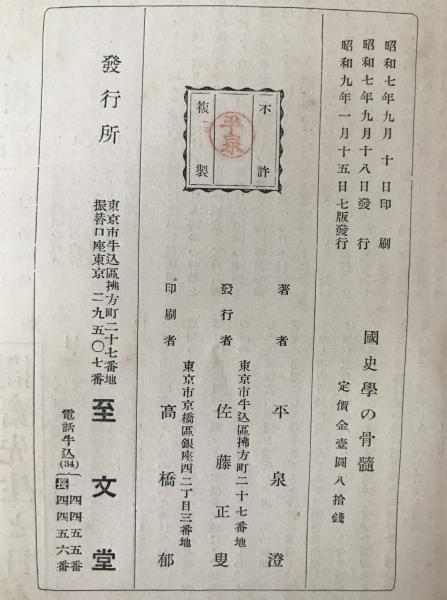 昭和七年九月十日印刷
昭和七年九月十八日發行
昭和九年一月十五日七版發行
國史學の骨髓
定價金壹圓八拾錢
不許
複製
平泉
著者 平泉澄
東京市牛込區拂方町二十七番地
發行者 佐藤正叟
東京市京橋區銀座西二丁目三番地
印刷者 高橋郁
發行所
東京市牛込區拂方町二十七番地
振替口座東京二九五〇七番
至文堂
電話牛込(34)
四四五五番
長四四五六番